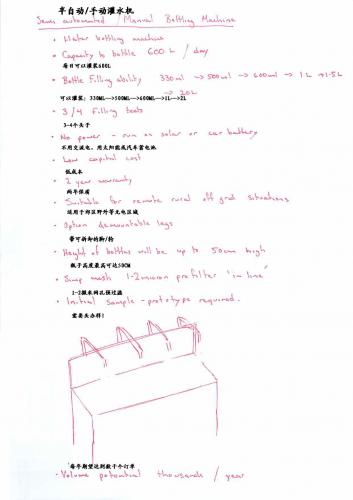 半自动/手动灌水机
Semi automated / Manual Bottling Machine
• Water bottling machine
• Capacity to bottle 600 L / day
每日可以灌装600L
• Bottle Filling ability 330ml → 500ml → 600ml → 1L → 1.5L
→ 20L
可以灌装: 330ML—>500ML—>600ML—>1L—>2L
• 3/4 Filling
3-4个头子
• No power - run on solar or car battery
不用交流电,用太阳能或汽车蓄电池
• Low capital cost
低成本
• 2 year warranty
两年保质
• Suitable for remote rural off grid situations
适用于郊区野外等无电区域
• Option demountable legs
带可拆卸的脚/轮
• Height of bottles will be up to 50cm high
瓶子高度最高可达50CM
• mesh 1-2micron prefilter 'in line'
1-2微米网孔预过滤
• Initial sample - prototype required.
需要头办样!
每年期望达到数千个订单
• Volume potential thousands / year